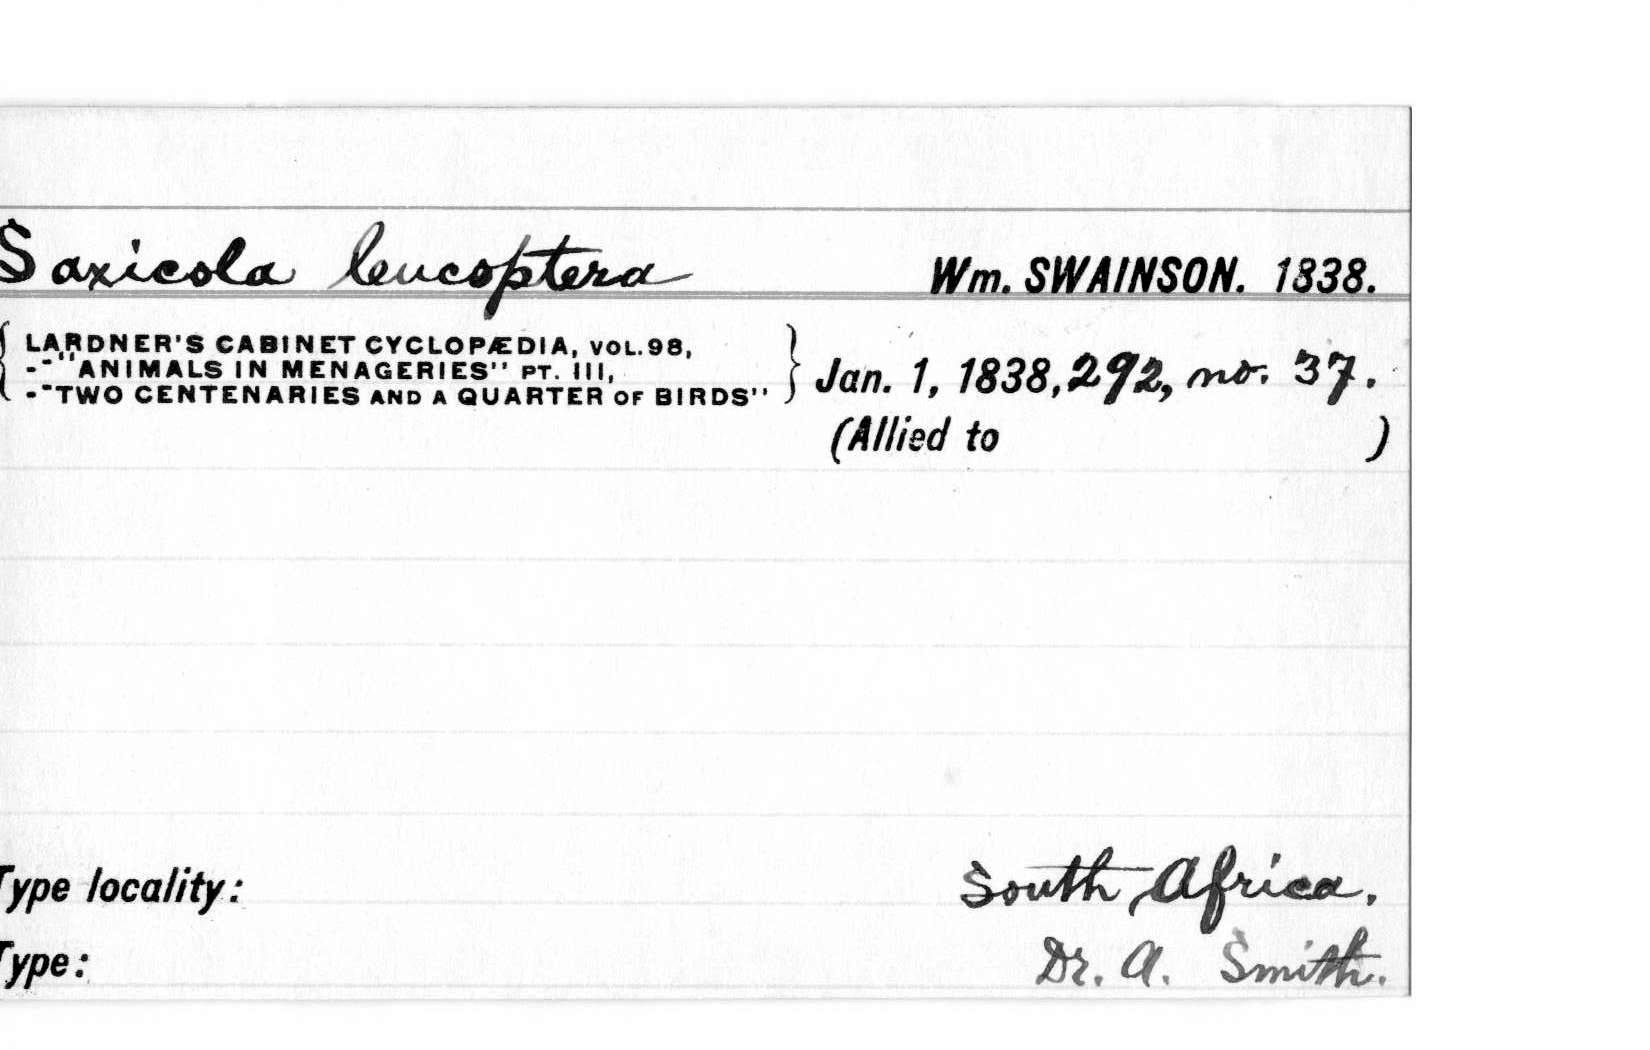 Saxicola leucoptera Wm. SWAINSON. 1838.
{ LARDNER'S CABINET CYCLOPÆDIA, VOL.98,
-"ANIMALS IN MENAGERIES" PT. III,
-"TWO CENTENARIES AND A QUARTER OF BIRDS" } Jan. 1, 1838, 292, no. 37.
(Allied to )
Type locality: South Africa.
Type: Dr. A. Smith.